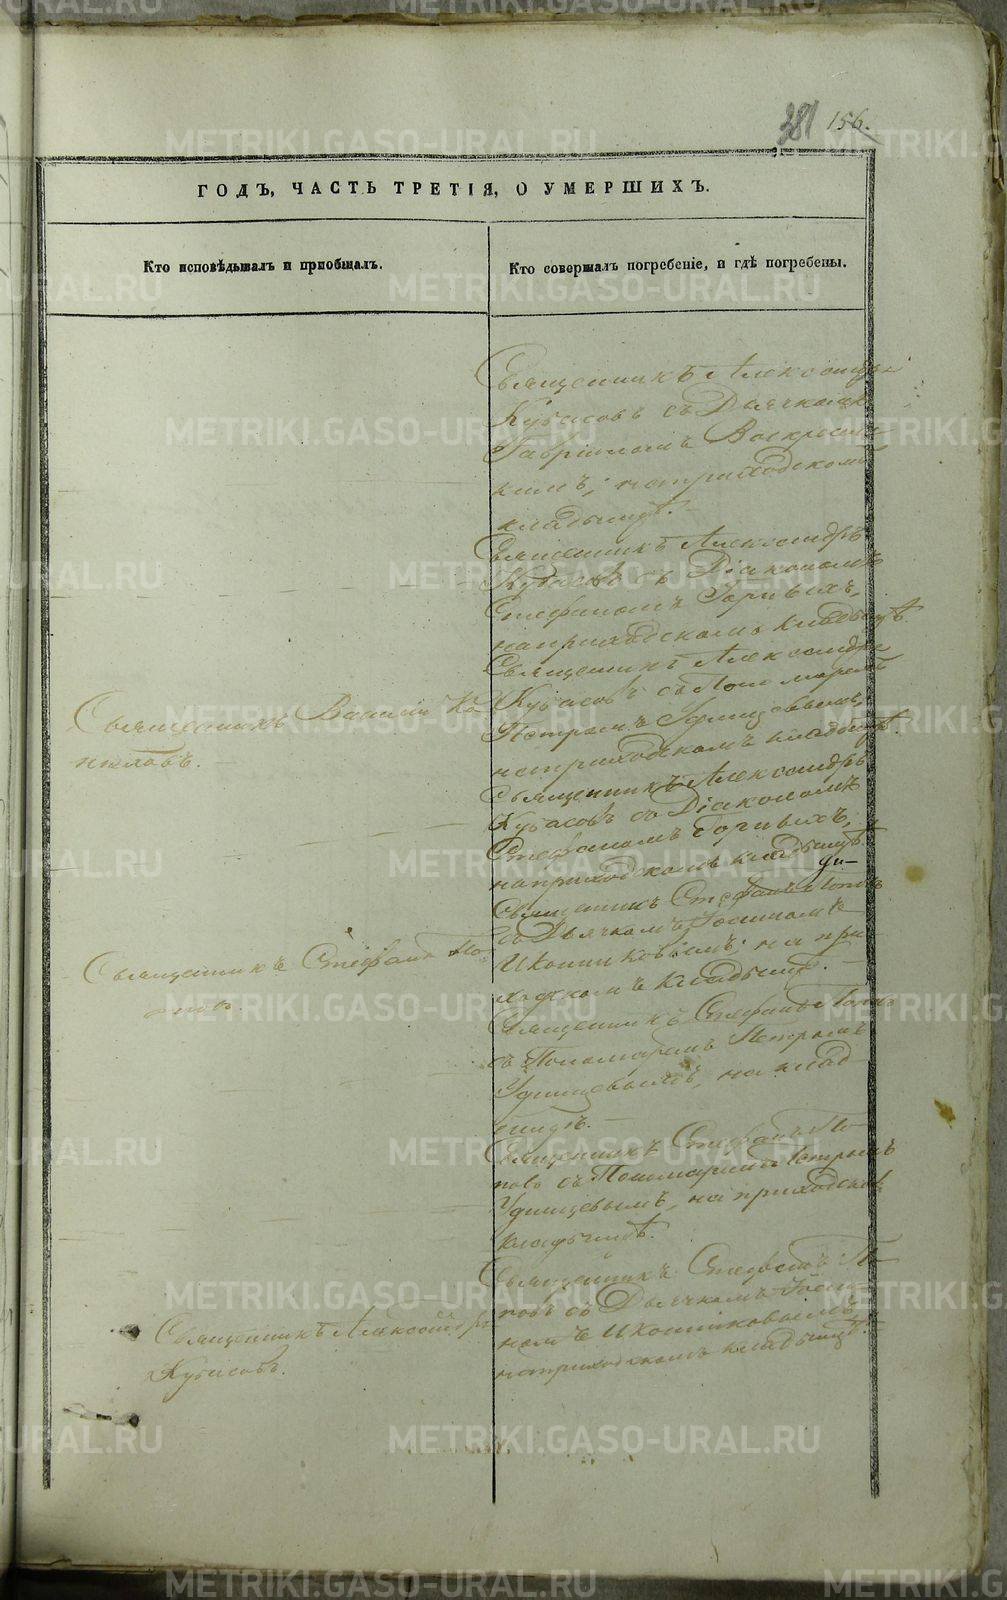 381 156.
ГОДЪ, ЧАСТЬ ТРЕТІЯ, О УМЕРШИХЪ.
Кто исповѣдывалъ и пріобщалъ.
Кто совершалъ погребеніе, и гдѣ погребены.
Священникъ Александръ
Кубасовъ съ Дьячкомъ
Гавріиломъ Воскресен
кимъ, на приходскомъ
кладбищѣ.
Священникъ Александръ
Кубасовъ съ Діакономъ
Стефаномъ
на приходскомъ кладбищѣ.
Священникъ Александръ
Кубасовъ съ Пономаремъ
Петромъ Удинцевымъ,
на приходскомъ кладбищѣ.
Священникъ Василій Ко
пыловъ.
Священникъ Александръ
Кубасовъ съ Діакономъ
Стефаномъ
на приходскомъ кладбищѣ.
Священникъ Стефанъ Поповъ
съ Дьячкомъ
Иконниковымъ, на при
ходскомъ кладбищѣ.
Священникъ Стефанъ По
повъ.
Священникъ Стефанъ Поповъ
съ Пономаремъ Петромъ
Удинцевымъ, на клад
бищѣ.
Священникъ Стефанъ По
повъ съ Пономаремъ Петромъ
Удинцевымъ, на приходскомъ
кладбищѣ.
Священникъ Стефанъ По
повъ съ Дьячкомъ
Иконниковымъ
на приходскомъ кладбищѣ.
Священникъ Александръ
Кубасовъ.
METRIKI.GASO-URAL.RU